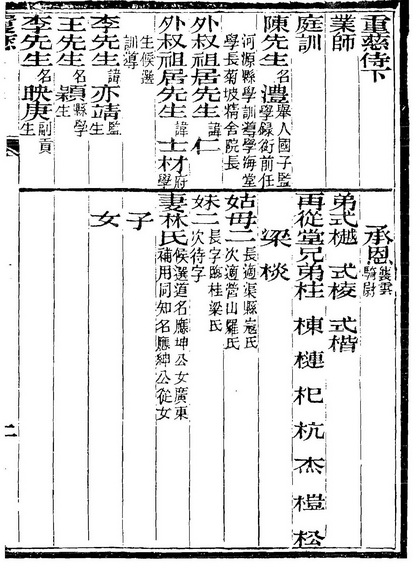 重慈侍下
業師
庭訓
陳先生名澧舉人國子監學錄銜前任
河源縣學訓導學海堂
學長菊坡精舍院長
外叔祖居先生諱仁
外叔祖居先生諱士材府學
生候選
訓導
李先生諱亦靖監生
王先生名穎縣學生
李先生名映庚副貢生
承恩襲雲騎尉
弟式樾 式棱 式楷
再從堂兄弟桂 棟 槤 杞 杭 杰 榿 松
梁 棪
姑母二長適渠縣寇氏次適營山羅氏
妹二長字臨桂梁氏次待字
妻林氏候選道名應坤公女廣東補用同知名應紳公從女
子
女
二